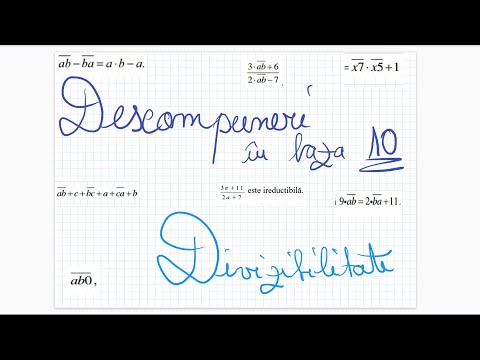 ab - ba = a · b - a.
3 · ab + 6
2 · ab - 7 .
= x7 · x5 + 1
Descompuneri
în baza 10
ab + c + bc + a + ca + b
3a + 11
2a + 7
este ireductibilă.
i 9•ab = 2•ba+11.
Divizibilitate
ab0 ,